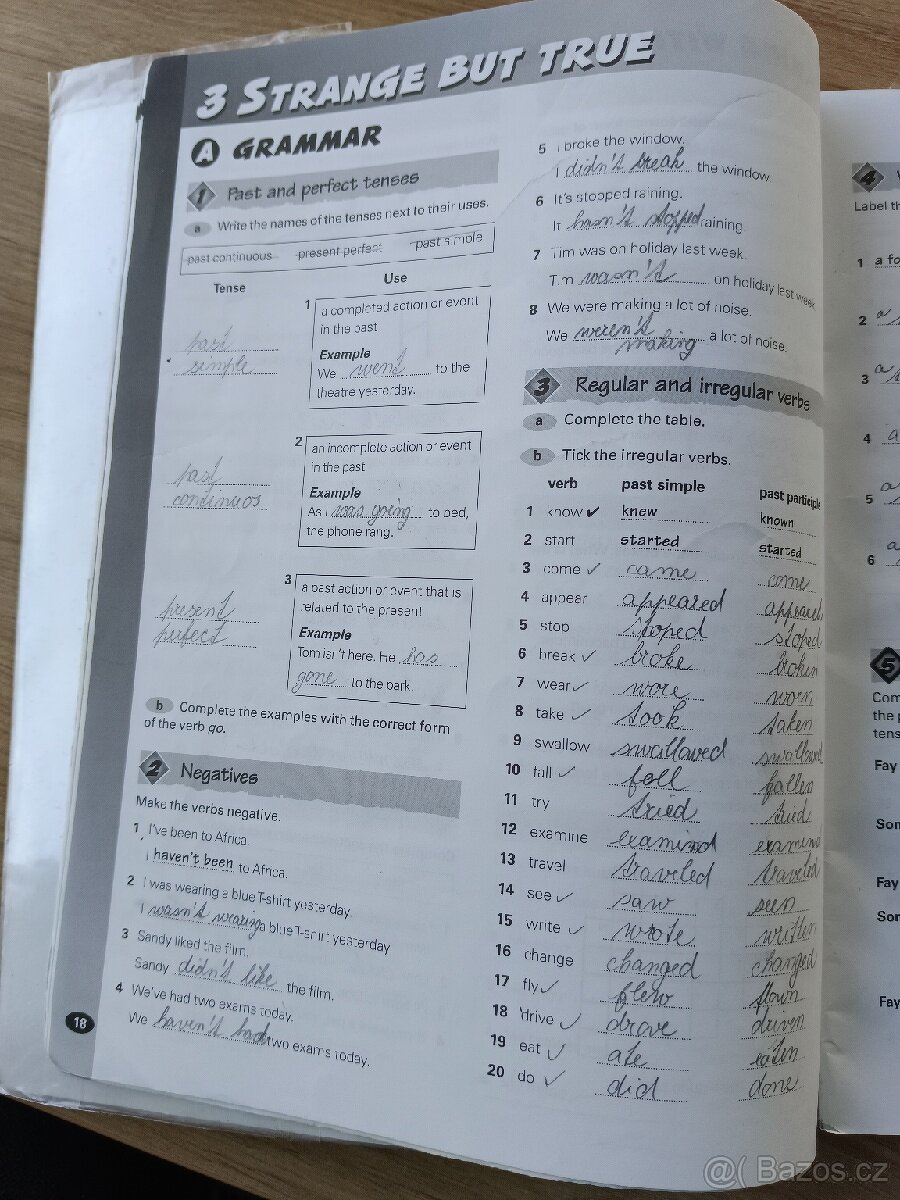 3 STRANGE BUT TRUE
A GRAMMAR
1 Past and perfect tenses
a Write the names of the tenses next to their uses.
past continuous present perfect past simple
Tense Use
past
simple
1 a completed action or event
in the past
Example
We went to the
theatre yesterday.
past
continuos
2 an incomplete action or event
in the past
Example
As I was going to bed,
the phone rang.
present
perfect
3 a past action or event that is
related to the present
Example
Tom isn't here. He has
gone to the park.
b Complete the examples with the correct form
of the verb go.
2 Negatives
Make the verbs negative.
1 I've been to Africa.
I haven't been to Africa.
2 I was wearing a blue T-shirt yesterday.
I wasn't wearing a blue T-shirt yesterday
3 Sandy liked the film.
Sandy didn't like the film.
4 We've had two exams today.
We haven't had two exams today.
18
5 I broke the window.
I didn't break the window
6 It's stopped raining.
It hasn't stopped raining
7 Tim was on holiday last week.
Tim wasn't on holiday last week
8 We were making a lot of noise.
We weren't
making a lot of noise.
3 Regular and irregular verbs
a Complete the table.
b Tick the irregular verbs.
verb past simple past participle
1 know ✓ knew known
2 start started started
3 come ✓ came come
4 appear appeared appeared
5 stop stoped stoped
6 break ✓ broke broken
7 wear ✓ wore worn
8 take ✓ took taken
9 swallow swallowed swallowed
10 fall ✓ fell fallen
11 try tried tried
12 examine examind examind
13 travel traveled traveled
14 see ✓ saw seen
15 write ✓ wrote written
16 change changed changed
17 fly ✓ flew flown
18 drive ✓ drove driven
19 eat ✓ ate eaten
20 do ✓ did done
4
Label th
1 a fo
2 a
3 a
4 a
5 a
6 a
5
Com
the p
tens
Fay
Son
Fay
Son
Fay
@ Bazos.cz